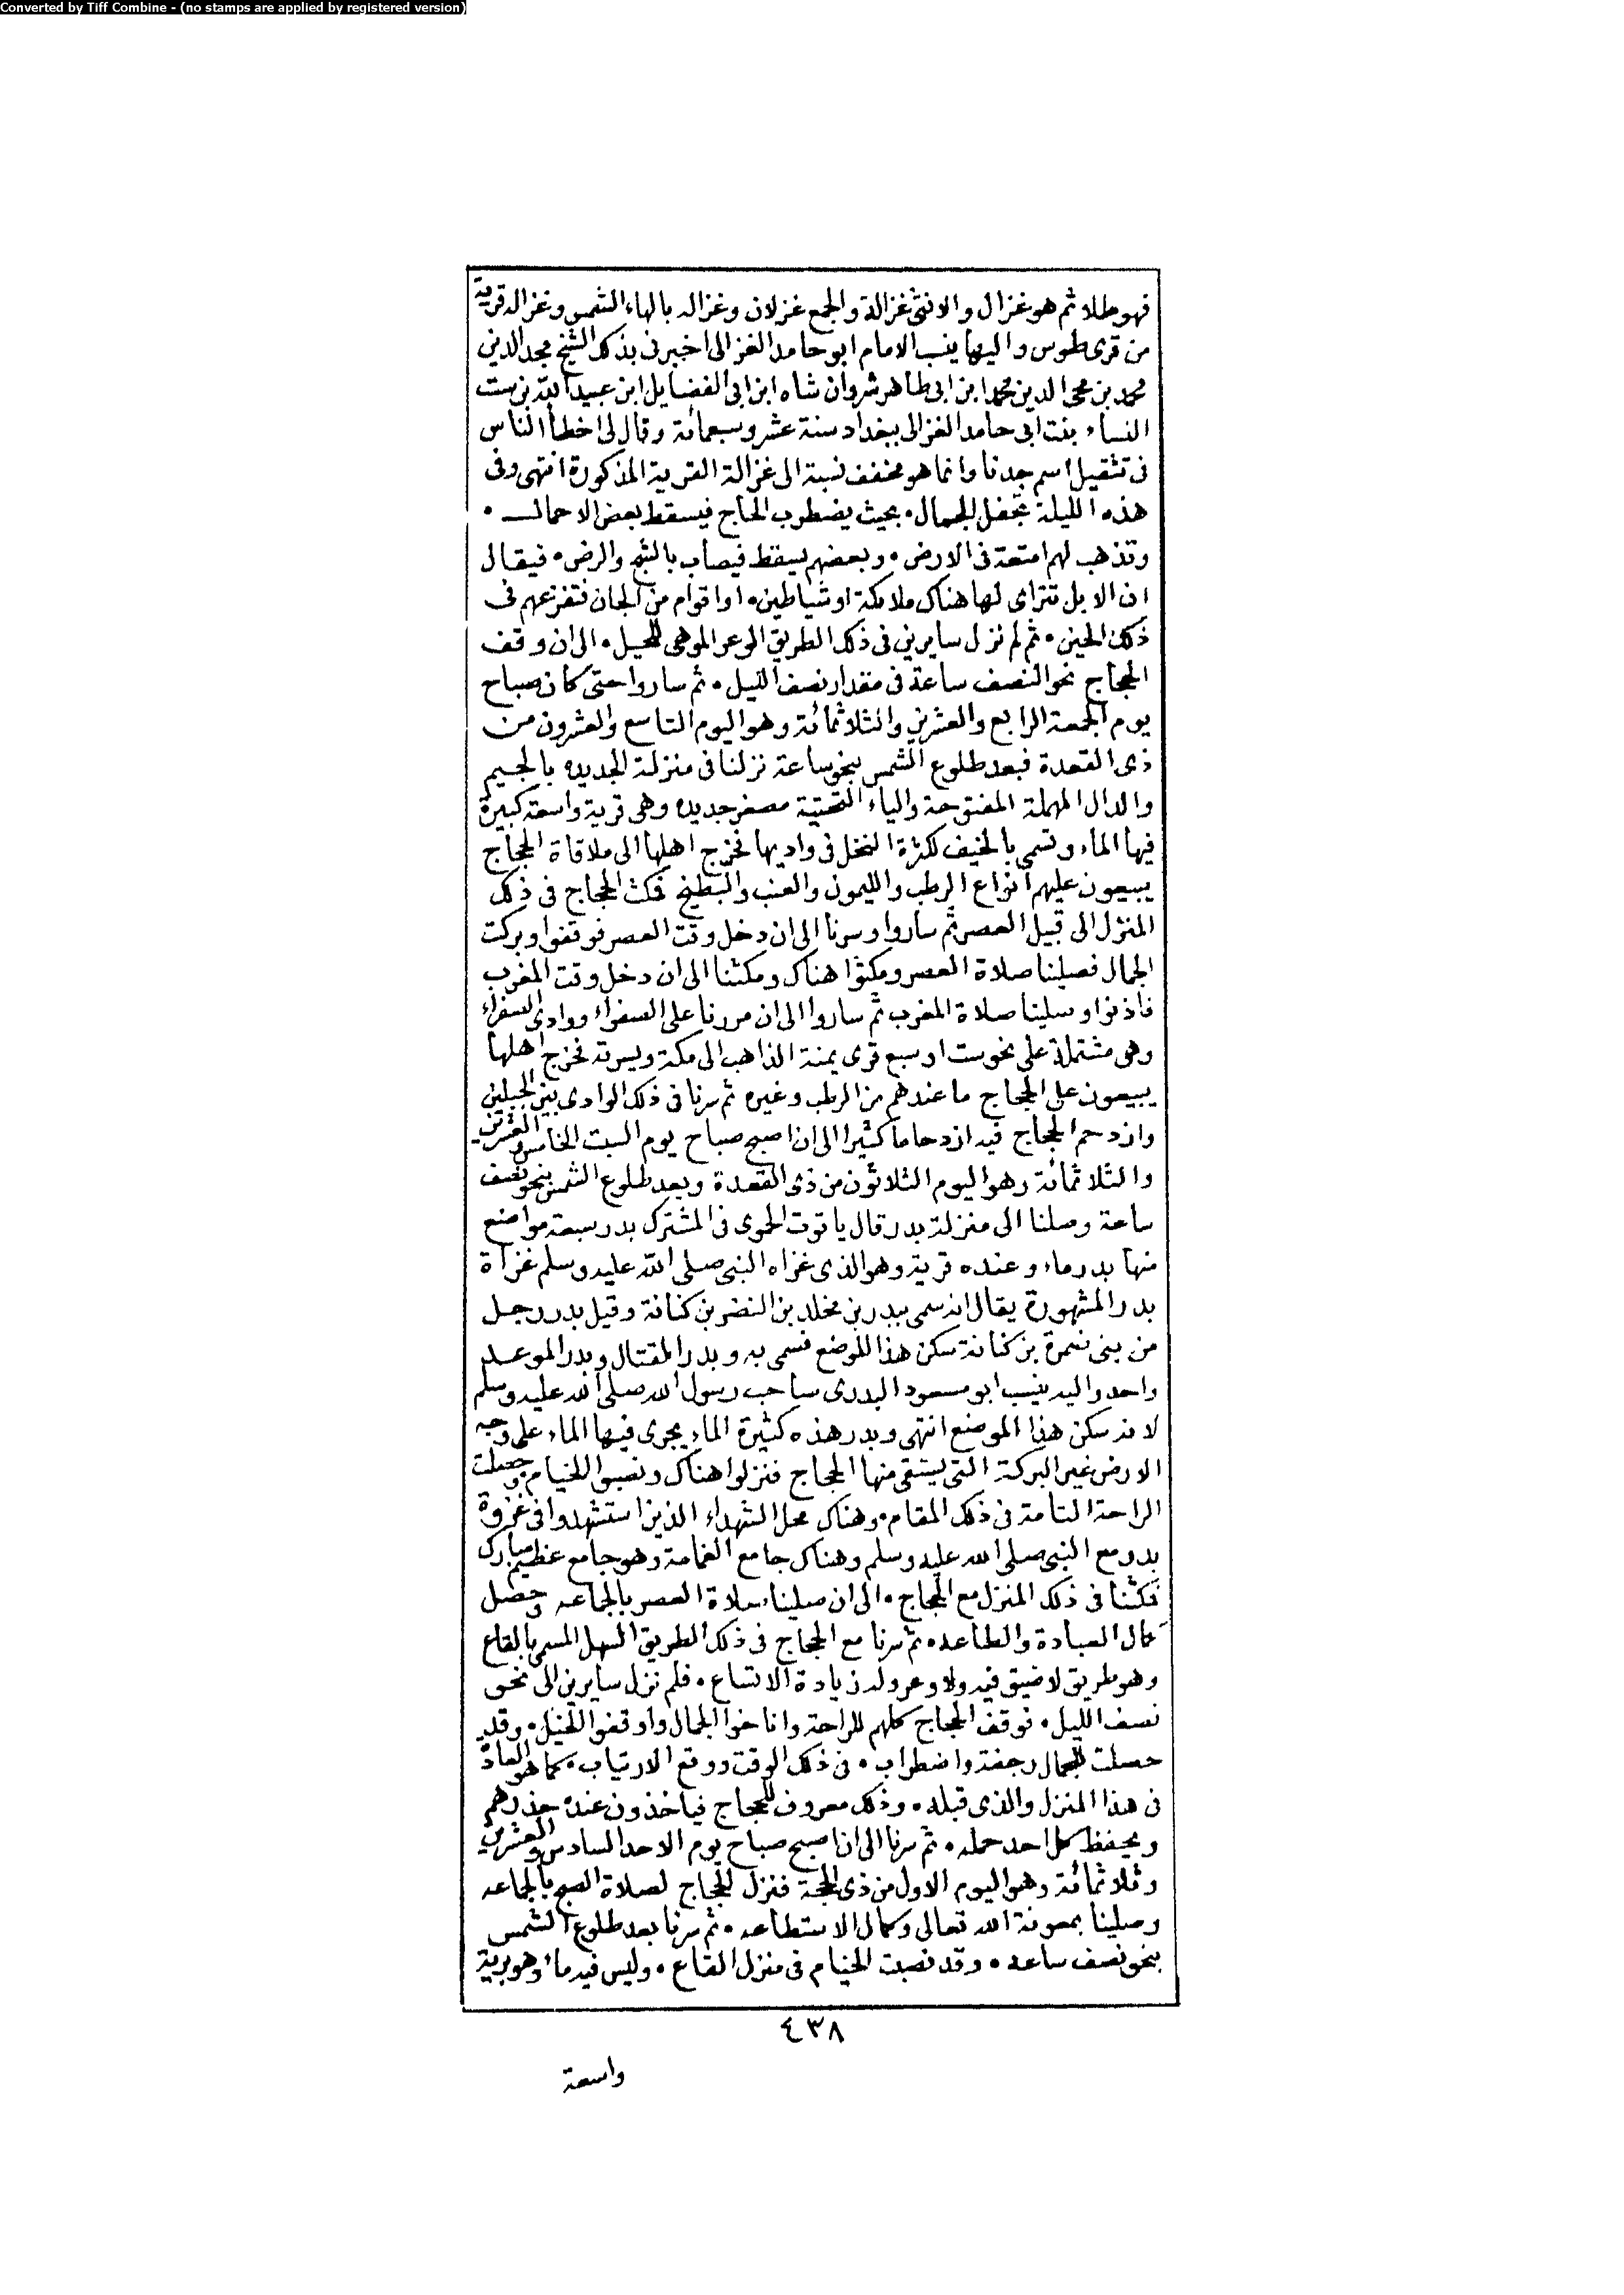 Converted by Tiff Combine - (no stamps are applied by registered version)
فهو طلا ثم هو غزال والانثى غزالة والجمع غزلان وغزاله بالهاء الشمس وغزاله قرية
من قرى طوس واليها ينسب الامام ابو حامد الغزالى اخبرنى بذكك الشيخ مجد الدين
محمد بن محى الدين محمد ابن ابى طاهر شروان شاه ابن ابى الفضايل ابن عبيد الله بن ست
النساء بنت ابى حامد الغزالى ببغداد سنة عشر وسبعمائة وقال لى اخطأ الناس
فى تثقيل اسم جدنا وانما هو مخفف نسبة الى غزالة القرية المذكورة انتهى وفى
هذه الليلة تجفل الجمال • بحيث يضطرب الحاج فيسقط بعض الاحمال •
وتذهب لهم امتعة فى الارض • وبعضهم يسقط فيصاب بالشج والرض • فيقال
ان الابل تتراى لها هناك ملائكة او شياطين • او اقوام من الجان فتفزعهم فى
ذلك الحين • ثم لم نزل سايرين فى ذلك الطريق الوعر الموهى للحيل • الى ان وقف
الحجاج نحو النصف ساعة فى مقدار نصف الليل • ثم ساروا حتى كان صباح
يوم الجمعة الرابع والعشرين والثلاثمائة وهو اليوم التاسع والعشرون من
ذى القعدة فبعد طلوع الشمس بنحو ساعة نزلنا فى منزلة الجديده بالجيم
والدال المهملة المفتوحة والياء التحتية مصغر جديده وهى قرية واسعة كبيرة
فيها الماء وتسمى بالخيف لكثرة النخل فى واديها فخرج اهلها الى ملاقاة الحجاج
يبيعون عليهم انواع الرطب والليمون والعنب والبطيخ فمكث الحجاج فى ذلك
المنزل الى قبيل العصر ثم ساروا وسرنا الى ان دخل وقت العصر فوقفوا وبركت
الجمال فصلينا صلاة العصر ومكثوا هناك ومكثنا الى ان دخل وقت المغرب
فاذنوا وصلينا صلاة المغرب ثم ساروا الى ان مررنا على الصفراء ووادى الصفراء
وهى مشتملة على نحو ست او سبع قرى يمنة الذاهب الى مكة ويسرته فخرج اهلها
يبيعون على الحجاج ما عندهم من الرطب وغيره ثم سرنا فى ذلك الوادى بين الجبلين
وازدحم الحجاج فيه ازدحاما كثيرا الى ان اصبح صباح يوم السبت الخامس والعشرين
والثلاثمائة وهو اليوم الثلاثون من ذى القعدة وبعد طلوع الشمس بنحو نصف
ساعة وصلنا الى منزلة بدر قال ياقوت الحموى فى المشترك بدر سبعة مواضع
منها بدر ماء وعنده قرية وهو الذى غزاه النبى صلى الله عليه وسلم غزاة
بدر المشهورة يقال انه سمى ببدر بن مخلد بن النضر بن كنانة وقيل بدر رجل
من بنى ضمرة بن كنانة سكن هذا الموضع فسمى به وبدر المقتال وبدر الموعد
واحد واليه ينسب ابو مسعود البدرى صاحب رسول الله صلى الله عليه وسلم
لانه سكن هذا الموضع انتهى وبدر هذه كثيرة الماء يجرى فيها الماء على وجه
الارض غير البركة التى يستقى منها الحجاج فنزلوا هناك ونصبوا الخيام وحصلت
الراحة التامة فى ذلك المقام • وهناك محل الشهداء الذين استشهدوا فى غزوة
بدر مع النبى صلى الله عليه وسلم وهناك جامع الغمامة وهو جامع عظيم مبارك
فمكثنا فى ذلك المنزل مع الحجاج • الى ان صلينا صلاة العصر بالجماعه وحصل
كمال العبادة والطاعه • ثم سرنا مع الحجاج فى ذلك الطريق السهل المسمى بالقاع
وهو طريق لا ضيق فيه ولا وعر وله زيادة الاتساع • فلم نزل سايرين الى نحو
نصف الليل • فوقف الحجاج كلهم للراحة واناخوا الجمال واوقفوا الخيل • وقد
حصلت للجمال رجفة واضطراب • فى ذلك الوقت ووقع الارتياب • كما هو العادة
فى هذا المنزل والذى قبله • وذلك معروف للحجاج فياخذون عنده حذرهم
ويحفظ كل احد حمله • ثم سرنا الى ان اصبح صباح يوم الاحد السادس والعشرين
وثلاثمائة وهو اليوم الاول من ذى الحجة فنزل الحجاج لصلاة الصبح بالجماعه
وصلينا بمعونة الله تعالى وكمال الاستطاعه • ثم سرنا بعد طلوع الشمس
بنحو نصف ساعه • وقد نصبت الخيام فى منزل القاع • وليس فيه ماء وهو برية
٤٣٨
واسعة